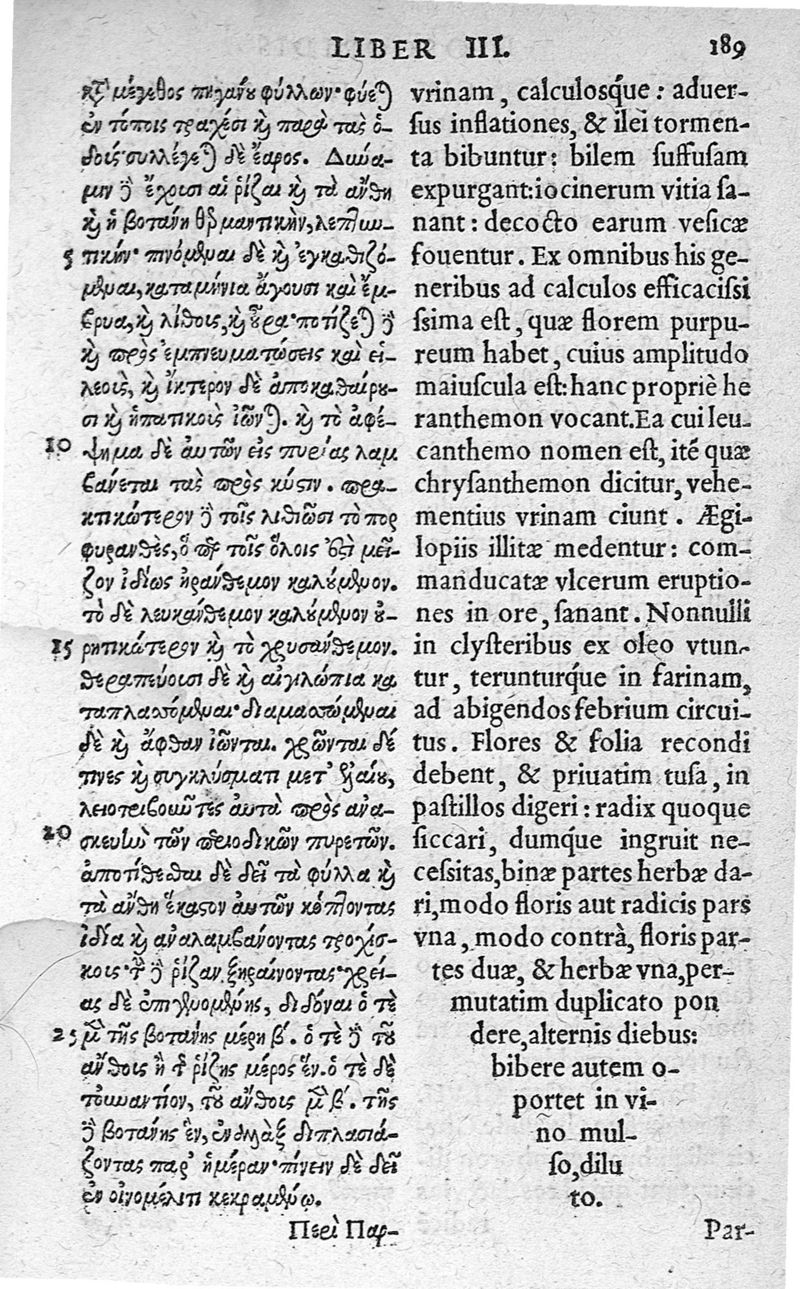 LIBER III. 189
κτ̀ μέγεθος πηγάνου φύλλων· φύεται
ἐν τόποις τραχέσι καὶ παρὰ τὰς ὁ-
δούς· συλλέγεται δὲ ἔαρος. Δύνα-
μιν δὲ ἔχουσι αἱ ῥίζαι καὶ τὰ ἄνθη
καὶ ἡ βοτάνη θερμαντικὴν, λεπτυν-
5 τικήν· πινόμεναι δὲ καὶ ἐγκαθιζό-
μεναι, καταμήνια ἄγουσι καὶ ἔμ-
βρυα, καὶ λίθους, καὶ οὖρα· ποτίζεται δὲ
καὶ πρὸς ἐμπνευματώσεις καὶ εἰ-
λεοὺς, καὶ ἴκτερον δὲ ἀποκαθαίρου-
σι καὶ ἡπατικοὺς ἰῶνται. καὶ τὸ ἀφέ-
10 ψημα δὲ αὐτῶν εἰς πυρίας λαμ
βάνεται τὰς πρὸς κύστιν. πρα-
κτικώτερον δὲ τοῖς λιθιῶσι τὸ πορ
φυρανθὲς, ὃ τοῖς ὅλοις ἐστὶ μεῖ-
ζον ἰδίως ἠράνθεμον καλούμενον.
τὸ δὲ λευκάνθεμον καλούμενον οὐ-
15 ρητικώτερον καὶ τὸ χρυσάνθεμον.
θεραπεύουσι δὲ καὶ αἰγιλώπια κα
ταπλασσόμεναι· διαμασσώμεναι
δὲ καὶ ἄφθαν ἰῶνται. χρῶνται δέ
τινες καὶ συγκλύσματι μετ' ἐλαίου,
λειοτριβοῦντες αὐτὰ πρὸς ἀνα-
20 σκευὴν τῶν περιοδικῶν πυρετῶν.
ἀποτίθεσθαι δὲ δεῖ τὰ φύλλα καὶ
τὰ ἄνθη ἕκαστον αὐτῶν κόπτοντας
ἰδίᾳ καὶ ἀναλαμβάνοντας τροχίσ-
κους· τὴν δὲ ῥίζαν ξηραίνοντας· χρεί-
ας δὲ ἐπιγενομένης, διδόναι ὁτὲ
25 μὲν τῆς βοτάνης μέρη β΄. ὁτὲ δὲ τοῦ
ἄνθους ἢ τῆς ῥίζης μέρος ἕν. ὁτὲ δὲ
τοὐναντίον, τοῦ ἄνθους μὲν β΄. τῆς
δὲ βοτάνης ἓν, ἐναλλὰξ διπλασιά-
ζοντας παρ' ἡμέραν· πίνειν δὲ δεῖ
ἐν οἰνομέλιτι κεκραμένῳ.
Περὶ Παρ-
vrinam, calculosq́ue: aduer-
ſus inflationes, & ilei tormen-
ta bibuntur: bilem ſuffuſam
expurgant: iocinerum vitia ſa-
nant: decocto earum veſicæ
fouentur. Ex omnibus his ge-
neribus ad calculos efficaciſsi
ſsima eſt, quæ florem purpu-
reum habet, cuius amplitudo
maiuſcula eſt: hanc propriè he
ranthemon vocant. Ea cui leu-
canthemo nomen eſt, itẽ quæ
chryſanthemon dicitur, vehe-
mentius vrinam ciunt. Ægi-
lopiis illitæ medentur: com-
manducatæ vlcerum eruptio-
nes in ore, ſanant. Nonnulli
in clyſteribus ex oleo vtun-
tur, terunturq́ue in farinam,
ad abigendos febrium circui-
tus. Flores & folia recondi
debent, & priuatim tuſa, in
paſtillos digeri: radix quoque
ſiccari, dumq́ue ingruit ne-
ceſsitas, binæ partes herbæ da-
ri, modo floris aut radicis pars
vna, modo contrà, floris par-
tes duæ, & herbæ vna, per-
mutatim duplicato pon
dere, alternis diebus:
bibere autem o-
portet in vi-
no mul-
ſo, dilu
to.
Par-